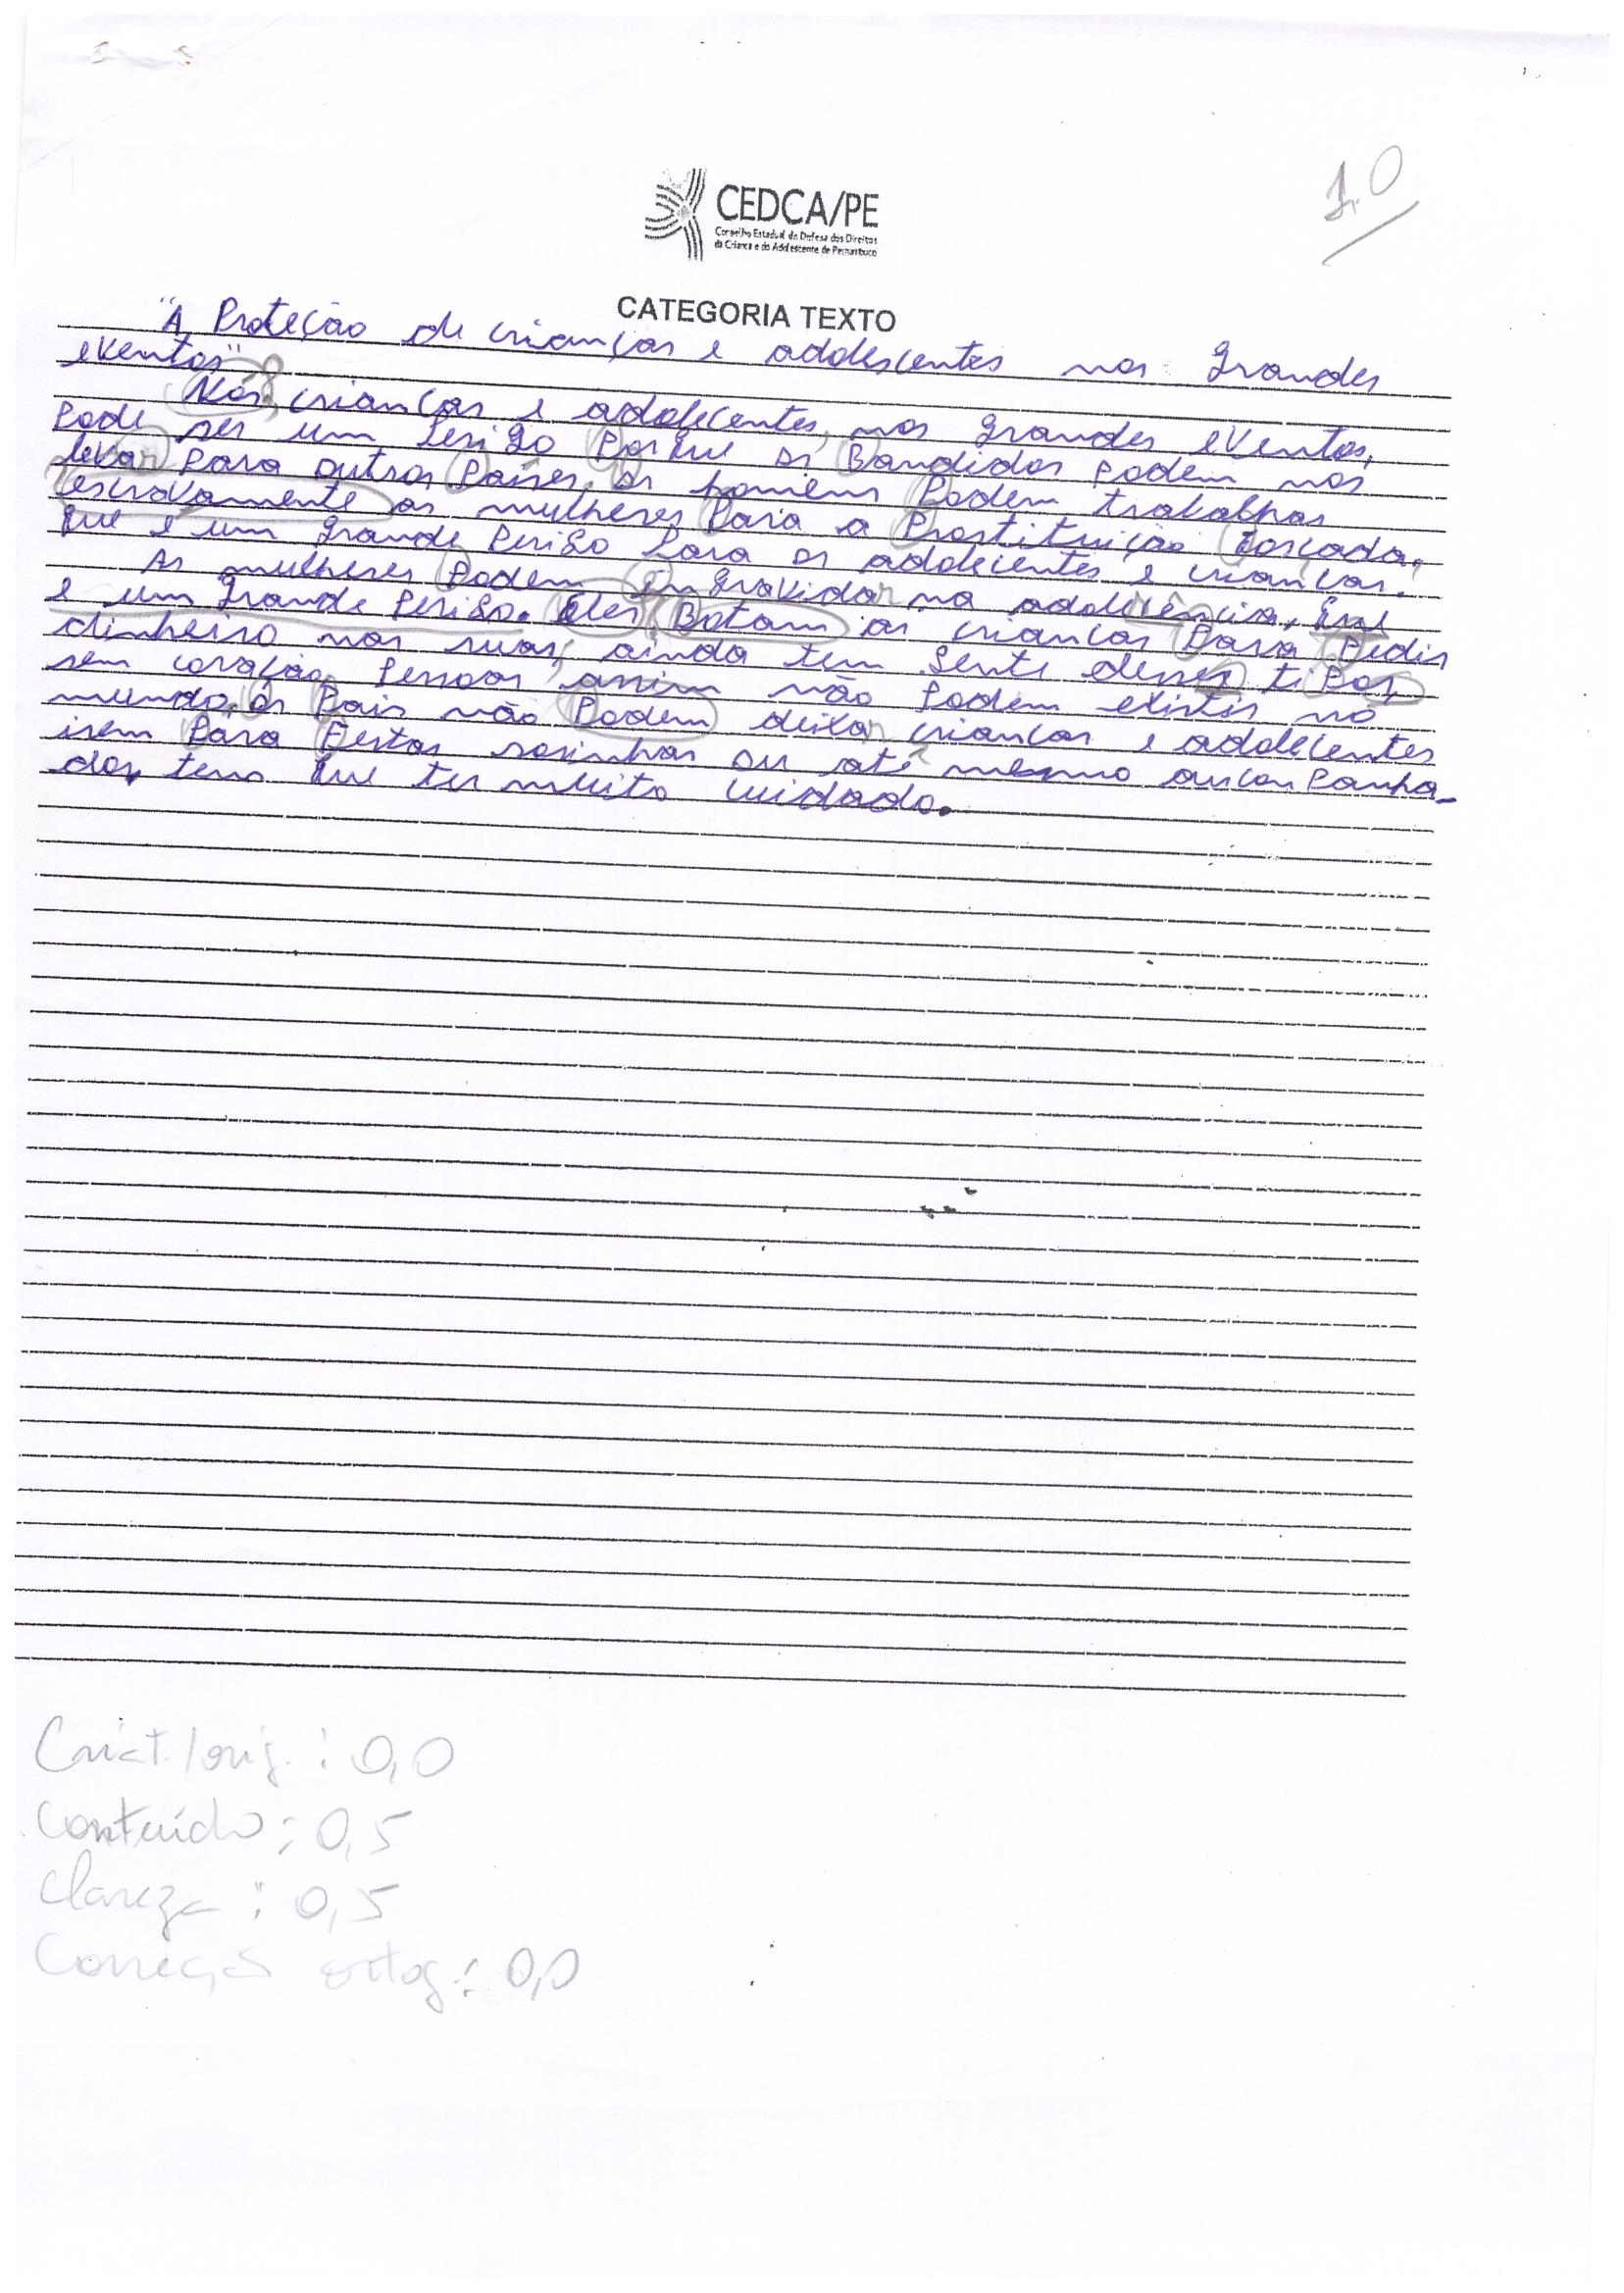 1.0
CEDCA/PE
Conselho Estadual de Defesa dos Direitos
da Criança e do Adolescente de Pernambuco
CATEGORIA TEXTO
"A Proteção de crianças e adolescentes nos grandes
eventos"
Nós, crianças e adolecentes, nos grandes eventos,
Pode ser um Perigo Porque os Bandidos Podem nos
levar Para outros Países. Os homens Podem trabalhar
escravamente as mulheres Para a Prostituição Forçada.
que e um grande Perigo Para os adolecentes e crianças.
As mulheres Podem engravidar na adolecência, que
e um grande Perigo. Eles Botam as crianças Para Pedir
dinheiro nas ruas, ainda tem gente desses tipos
sem coração. Pessoas assim não Podem existir no
mundo. Os Pais não Podem deixar crianças e adolecentes
irem Para Festas sosinhas ou até mesmo auconPanha-
dos, tem que ter muito cuidado.
Criat./orig.: 0,0
Conteúdo: 0,5
Clareza: 0,5
Correção ortog.: 0,0